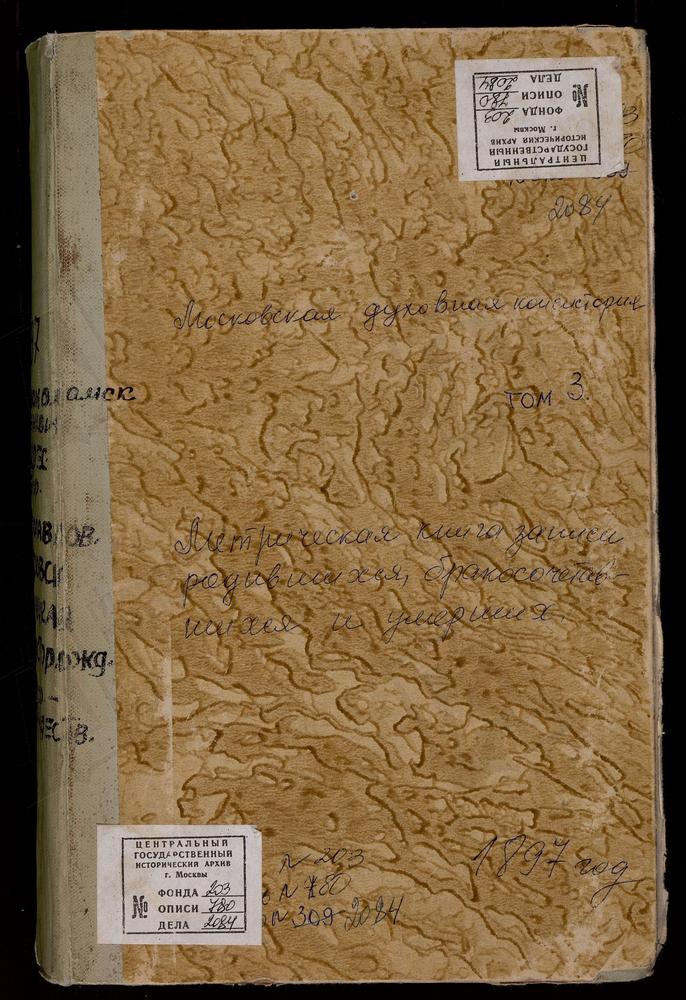 ЦЕНТРАЛЬНЫЙ
ГОСУДАРСТВЕННЫЙ
ИСТОРИЧЕСКИЙ АРХИВ
г. Москвы
№
ФОНДА 203
ОПИСИ 780
ДЕЛА 2084
2084
Московская духовная консистория
том 3.
Метрическая книга записи
родившихся, бракосочетав-
шихся и умерших.
1897 год
N 203
N 780
N 309 2084
ЦЕНТРАЛЬНЫЙ
ГОСУДАРСТВЕННЫЙ
ИСТОРИЧЕСКИЙ АРХИВ
г. Москвы
№
ФОНДА 203
ОПИСИ 780
ДЕЛА 2084